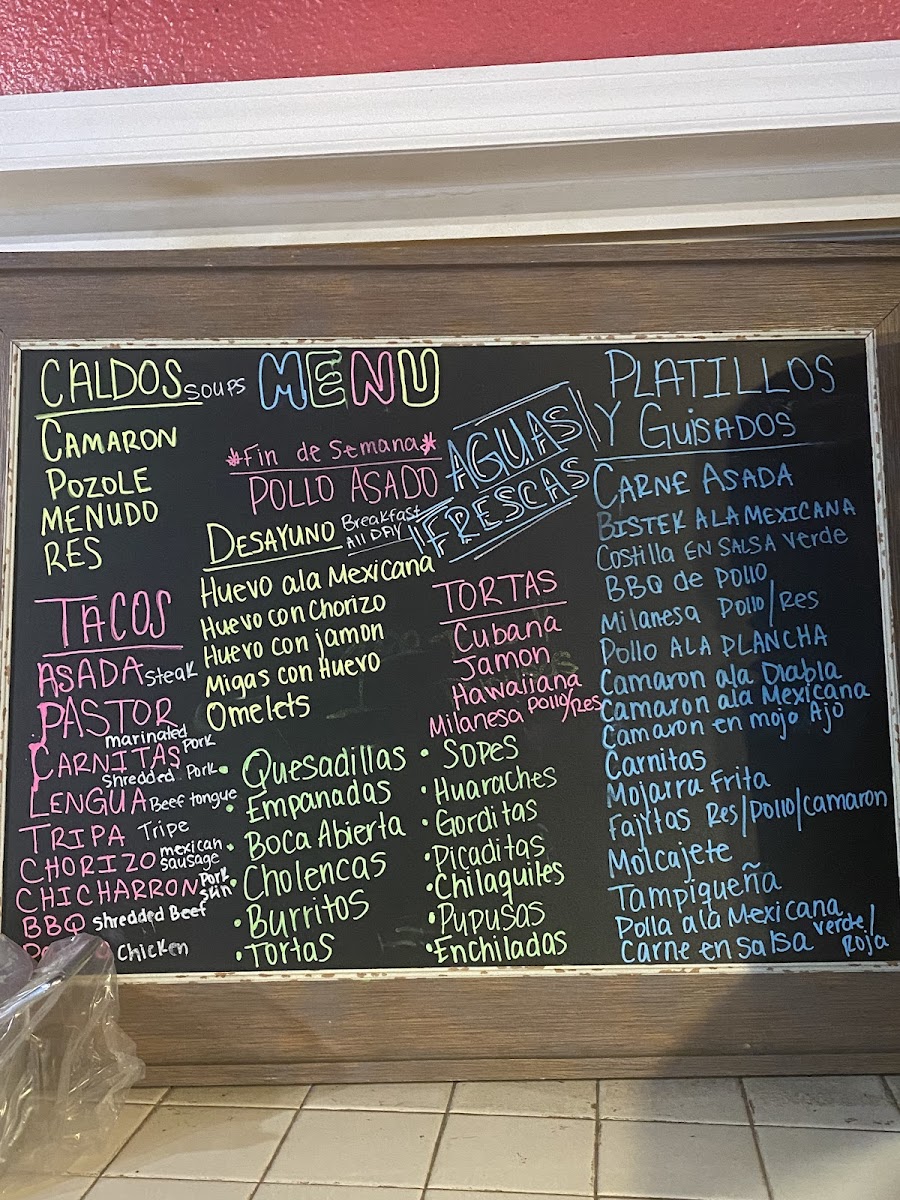 CALDOS SOUPS
CAMARON
POZOLE
MENUDO
RES
TACOS
ASADA Steak
PASTOR
marinated Pork
CARNITAS
Shredded Pork
LENGUA Beef tongue
TRIPA Tripe
CHORIZO mexican sausage
CHICHARRON Pork Skin
BBQ Shredded Beef
Chicken
MENU
*Fin de Semana*
POLLO ASADO
DESAYUNO Breakfast All DAY
Huevo ala Mexicana
Huevo con Chorizo
Huevo con jamon
Migas con Huevo
Omelets
• Quesadillas
• Empanadas
• Boca Abierta
• Cholencas
• Burritos
• Tortas
AGUAS
FRESCAS
TORTAS
Cubana
Jamon
Hawaiiana
Milanesa Pollo/Res
• SOPES
• Huaraches
• Gorditas
• Picaditas
• Chilaquiles
• Pupusas
• Enchiladas
PLATILLOS
Y GUISADOS
CARNE ASADA
BISTEK ALA MEXICANA
Costilla EN SALSA Verde
BBQ de Pollo
Milanesa Pollo/Res
Pollo ALA PLANCHA
Camaron ala Diabla
Camaron ala Mexicana
Camaron en mojo Ajo
Carnitas
Mojarra Frita
Fajytas Res/Pollo/camaron
Molcajete
Tampiqueña
Polla ala Mexicana
Carne en salsa verde/Roja